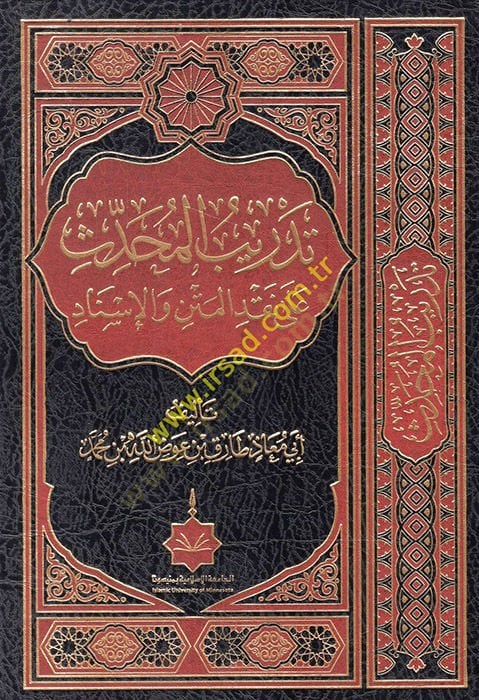 تدريب المحدّث
على نقد المتن والإسناد
تأليف
أبي معاذ طارق بن عوض الله بن محمد
الجامعة الإسلامية بمنيسوتا
Islamic University of Minnesota
تدريب المحدّث
www.irsad.com.tr